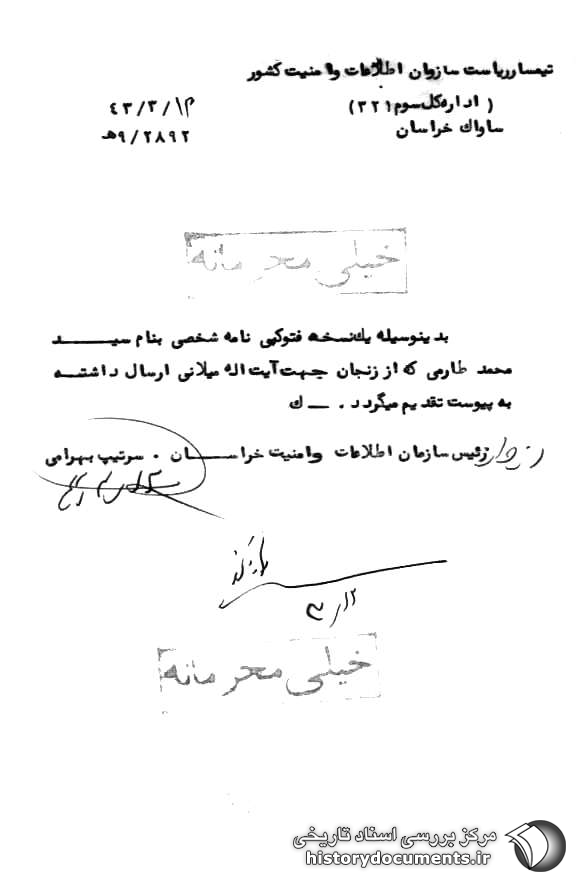 تیمسار ریاست سازمان اطلاعات و امنیت کشور
( اداره کل سوم ۳۲۱ )
ساواک خراسان
۴۳/۳/۱۲
۹/۲۸۹۲ه‍
خیلی محرمانه
بدینوسیله یک نسخه فتوکپی نامه شخصی بنام سیـــــد
محمد طارمی که از زنجان جهت آیت اله میلانی ارسال داشتـــه
به پیوست تقدیم میگردد . ــ ک
رئیس سازمان اطلاعات و امنیت خراســـان . سرتیپ بهرامی
خیلی محرمانه
مرکز بررسی اسناد تاریخی
historydocuments.ir